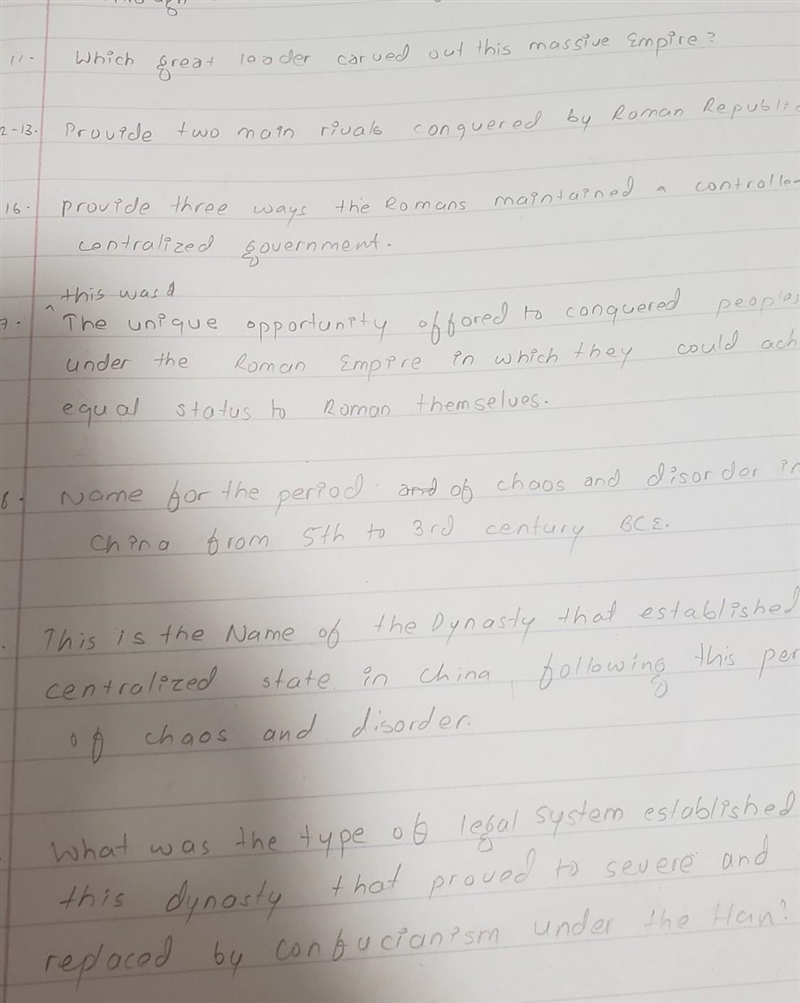 11. Which great loader carved out this massive Empire?
2-13. Provide two main rivals conquered by Roman Republic
16. provide three ways the Romans maintained a controlle
contralized government.
this was
7. ^The unique opportunity offored to conquered peoples
under the Roman Empire in which they could ach
equal status to Roman themselves.
8. Name for the period and of chaos and disorder in
China from 5th to 3rd century BCE.
. This is the Name of the Dynasty that established
centralized state in china following this per
of chaos and disorder.
What was the type of legal system established
this dynasty that proved to severe and
replaced by confucianism under the Han?